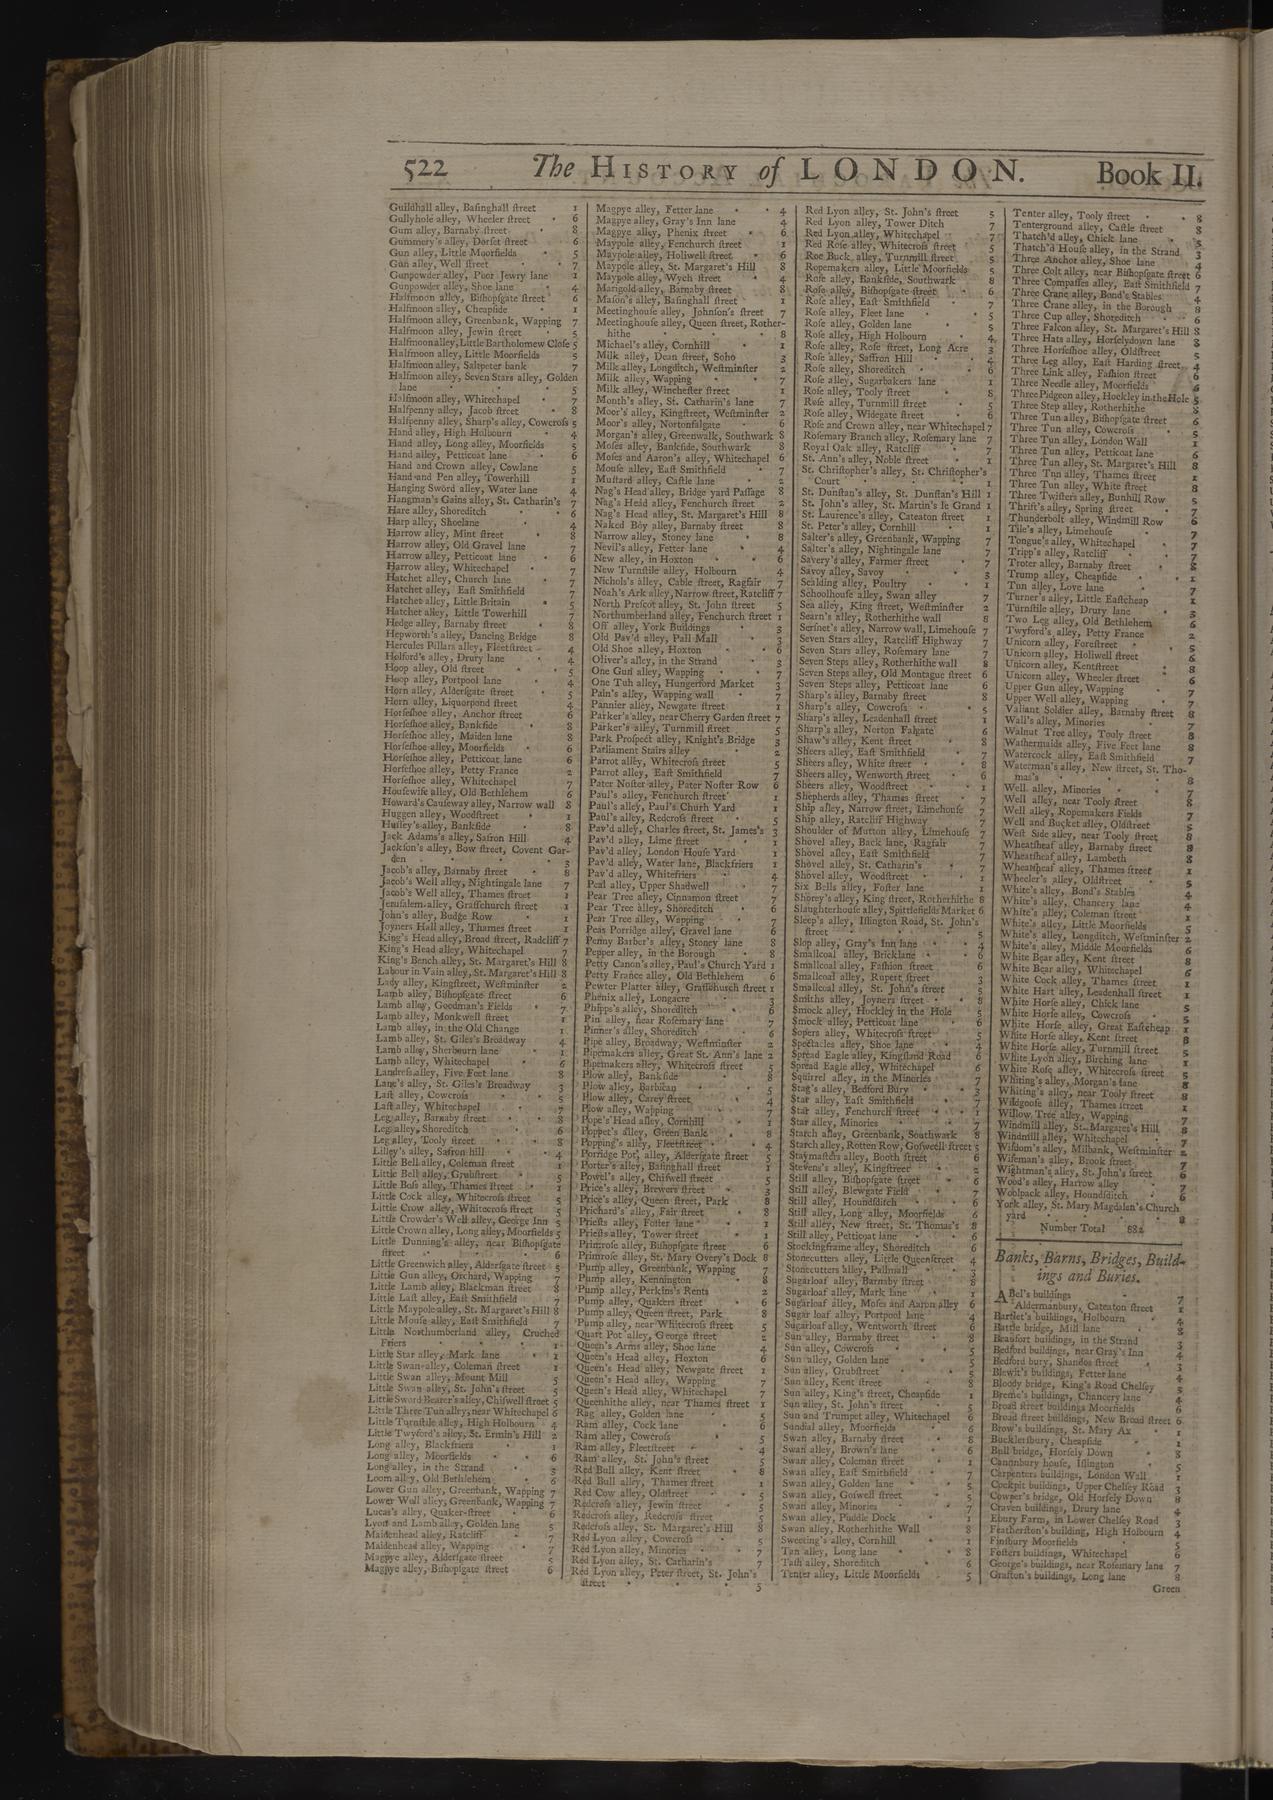 522 The HISTORY of LONDON. Book II.
Guildhall alley, Baſinghall ſtreet 1
Gullyhole alley, Wheeler ſtreet 6
Gum alley, Barnaby ſtreet 8
Gummery's alley, Dorſet ſtreet 6
Gun alley, Little Moorfields 5
Gun alley, Well ſtreet 7
Gunpowder alley, Poor Jewry lane 1
Gunpowder alley, Shoe lane 4
Halfmoon alley, Biſhopſgate ſtreet 6
Halfmoon alley, Cheapſide 1
Halfmoon alley, Greenbank, Wapping 7
Halfmoon alley, Jewin ſtreet 5
Halfmoon alley, Little Bartholomew Cloſe 5
Halfmoon alley, Little Moorfields 5
Halfmoon alley, Saltpeter bank 7
Halfmoon alley, Seven Stars alley, Golden
lane 5
Halfmoon alley, Whitechapel 7
Halfpenny alley, Jacob ſtreet 8
Halfpenny alley, Sharp's alley, Cowcroſs 5
Hand alley, High Holbourn 4
Hand alley, Long alley, Moorfields 5
Hand alley, Petticoat lane 6
Hand and Crown alley, Cowlane 5
Hand and Pen alley, Towerhill 1
Hanging Sword alley, Water lane 4
Hangman's Gains alley, St. Catharin's 7
Hare alley, Shoreditch 6
Harp alley, Shoelane 4
Harrow alley, Mint ſtreet 8
Harrow alley, Old Gravel lane 7
Harrow alley, Petticoat lane 6
Harrow alley, Whitechapel 7
Hatchet alley, Church lane 7
Hatchet alley, Eaſt Smithfield 7
Hatchet alley, Little Britain 5
Hatchet alley, Little Towerhill 7
Hedge alley, Barnaby ſtreet 8
Hepworth's alley, Dancing Bridge 8
Hercules Pillars alley, Fleetſtreet 4
Holford's alley, Drury lane 4
Hoop alley, Old ſtreet 5
Hoop alley, Portpool lane 4
Horn alley, Alderſgate ſtreet 5
Horn alley, Liquorpond ſtreet 4
Horſeſhoe alley, Anchor ſtreet 6
Horſeſhoe alley, Bankſide 8
Horſeſhoe alley, Maiden lane 8
Horſeſhoe alley, Moorfields 6
Horſeſhoe alley, Petticoat lane 6
Horſeſhoe alley, Petty France 2
Horſeſhoe alley, Whitechapel 7
Houſewife alley, Old Bethlehem 6
Howard's Cauſeway alley, Narrow wall 8
Huggen alley, Woodſtreet 1
Huſſey's alley, Bankſide 8
Jack Adams's alley, Safron Hill 4
Jackſon's alley, Bow ſtreet, Covent Gar-
den 3
Jacob's alley, Barnaby ſtreet 8
Jacob's Well alley, Nightingale lane 7
Jacob's Well alley, Thames ſtreet 1
Jeruſalem alley, Graſſchurch ſtreet 1
John's alley, Budge Row 1
Joyners Hall alley, Thames ſtreet 1
King's Head alley, Broad ſtreet, Radcliff 7
King's Head alley, Whitechapel 7
King's Bench alley, St. Margaret's Hill 8
Labour in Vain alley, St. Margaret's Hill 8
Lady alley, Kingſtreet, Weſtminſter 2
Lamb alley, Biſhopſgate ſtreet 6
Lamb alley, Goodman's Fields 7
Lamb alley, Monkwell ſtreet 1
Lamb alley, in the Old Change 1
Lamb alley, St. Giles's Broadway 4
Lamb alley, Sherbourn lane 1
Lamb alley, Whitechapel 6
Landreſs alley, Five Feet lane 8
Lane's alley, St. Giles's Broadway 3
Laſt alley, Cowcroſs 5
Laſt alley, Whitechapel 7
Leg alley, Barnaby ſtreet 8
Leg alley, Shoreditch 6
Leg alley, Tooly ſtreet 8
Lilley's alley, Safron hill 4
Little Bell alley, Coleman ſtreet 1
Little Bell alley, Grubſtreet 5
Little Boſs alley, Thames ſtreet 1
Little Cock alley, Whitecroſs ſtreet 5
Little Crow alley, Whitecroſs ſtreet 5
Little Crowder's Well alley, George Inn 5
Little Crown alley, Long alley, Moorfields 5
Little Dunning's alley, near Biſhopſgate
ſtreet 6
Little Greenwich alley, Alderſgate ſtreet 5
Little Gun alley, Orchard, Wapping 7
Little Lamb alley, Blackman ſtreet 8
Little Laſt alley, Eaſt Smithfield 7
Little Maypole alley, St. Margaret's Hill 8
Little Mouſe alley, Eaſt Smithfield 7
Little Northumberland alley, Cruched
Friers 1
Little Star alley, Mark lane 1
Little Swan alley, Coleman ſtreet 1
Little Swan alley, Mount Mill 5
Little Swan alley, St. John's ſtreet 5
Little Sword Bearer's alley, Chiſwell ſtreet 5
Little Three Tun alley, near Whitechapel 6
Little Turnſtile alley, High Holbourn 4
Little Twyford's alley, St. Ermin's Hill 2
Long alley, Blackfriers 1
Long alley, Moorfields 6
Long alley, in the Strand 3
Loom alley, Old Bethlehem 6
Lower Gun alley, Greenbank, Wapping 7
Lower Well alley, Greenbank, Wapping 7
Lucas's alley, Quaker-ſtreet 6
Lyon and Lamb alley, Golden lane 5
Maidenhead alley, Ratcliff 7
Maidenhead alley, Wapping 7
Magpye alley, Alderſgate ſtreet 5
Magpye alley, Biſhopſgate ſtreet 6
Magpye alley, Fetter lane 4
Magpye alley, Gray's Inn lane 4
Magpye alley, Phenix ſtreet 6
Maypole alley, Fenchurch ſtreet 1
Maypole alley, Holiwell ſtreet 6
Maypole alley, St. Margaret's Hill 8
Maypole alley, Wych ſtreet 4
Marigold alley, Barnaby ſtreet 8
Maſon's alley, Baſinghall ſtreet 1
Meetinghouſe alley, Johnſon's ſtreet 7
Meetinghouſe alley, Queen ſtreet, Rother-
hithe 8
Michael's alley, Cornhill 1
Milk alley, Dean ſtreet, Soho 3
Milk alley, Longditch, Weſtminſter 2
Milk alley, Wapping 7
Milk alley, Wincheſter ſtreet 1
Month's alley, St. Catharin's lane 7
Moor's alley, Kingſtreet, Weſtminſter 2
Moor's alley, Nortonfalgate 6
Morgan's alley, Greenwalk, Southwark 8
Moſes alley, Bankſide, Southwark 8
Moſes and Aaron's alley, Whitechapel 6
Mouſe alley, Eaſt Smithfield 7
Muſtard alley, Caſtle lane 2
Nag's Head alley, Bridge yard Paſſage 8
Nag's Head alley, Fenchurch ſtreet 2
Nag's Head alley, St. Margaret's Hill 8
Naked Boy alley, Barnaby ſtreet 8
Narrow alley, Stoney lane 8
Nevil's alley, Fetter lane 4
New alley, in Hoxton 6
New Turnſtile alley, Holbourn 4
Nichols's alley, Cable ſtreet, Ragfair 7
Noah's Ark alley, Narrow ſtreet, Ratcliff 7
North Preſcot alley, St. John ſtreet 5
Northumberland alley, Fenchurch ſtreet 1
Off alley, York Buildings 3
Old Pav'd alley, Pall Mall 3
Old Shoe alley, Hoxton 6
Oliver's alley, in the Strand 3
One Gun alley, Wapping 7
One Tun alley, Hungerford Market 3
Pain's alley, Wapping wall 7
Pannier alley, Newgate ſtreet 1
Parker's alley, near Cherry Garden ſtreet 7
Parker's alley, Turnmill ſtreet 5
Park Proſpect alley, Knight's Bridge 3
Parliament Stairs alley 2
Parrot alley, Whitecroſs ſtreet 5
Parrot alley, Eaſt Smithfield 7
Pater Noſter alley, Pater Noſter Row 6
Paul's alley, Fenchurch ſtreet 1
Paul's alley, Paul's Churh Yard 1
Paul's alley, Redcroſs ſtreet 5
Pav'd alley, Charles ſtreet, St. James's 3
Pav'd alley, Lime ſtreet 1
Pav'd alley, London Houſe Yard 1
Pav'd alley, Water lane, Blackfriers 1
Pav'd alley, Whitefriers 4
Peal alley, Upper Shadwell 7
Pear Tree alley, Cinnamon ſtreet 7
Pear Tree alley, Shoreditch 6
Pear Tree alley, Wapping 7
Peas Porridge alley, Gravel lane 6
Penny Barber's alley, Stoney lane 8
Pepper alley, in the Borough 8
Petty Canon's alley, Paul's Church Yard 1
Petty France alley, Old Bethlehem 6
Pewter Platter alley, Graſſchurch ſtreet 1
Phenix alley, Longacre 3
Phipps's alley, Shoreditch 6
Pin alley, near Roſemary lane 7
Pinner's alley, Shoreditch 6
Pipe alley, Broadway, Weſtminſter 2
Pipemakers alley, Great St. Ann's lane 2
Pipemakers alley, Whitecroſs ſtreet 5
Plow alley, Bankſide 8
Plow alley, Barbican 5
Plow alley, Carey ſtreet 4
Plow alley, Wapping 7
Pope's Head alley, Cornhill 1
Poppet's alley, Green Bank 8
Popping's alley, Fleetſtreet 4
Porridge Pot alley, Alderſgate ſtreet 5
Porter's alley, Baſinghall ſtreet 1
Powel's alley, Chiſwell ſtreet 5
Price's alley, Brewers ſtreet 3
Price's alley, Queen ſtreet, Park 8
Prichard's alley, Fair ſtreet 8
Prieſts alley, Foſter lane 1
Prieſts alley, Tower ſtreet 1
Primroſe alley, Biſhopſgate ſtreet 6
Primroſe alley, St. Mary Overy's Dock 8
Pump alley, Greenbank, Wapping 7
Pump alley, Kennington 8
Pump alley, Perkins's Rents 2
Pump alley, Quakers ſtreet 6
Pump alley, Queen ſtreet, Park 8
Pump alley, near Whitecroſs ſtreet 5
Quart Pot alley, George ſtreet 2
Queen's Arms alley, Shoe lane 4
Queen's Head alley, Hoxton 6
Queen's Head alley, Newgate ſtreet 1
Queen's Head alley, Wapping 7
Queen's Head alley, Whitechapel 7
Queenhithe alley, near Thames ſtreet 1
Rag alley, Golden lane 5
Ram alley, Cock lane 6
Ram alley, Cowcroſs 5
Ram alley, Fleetſtreet 4
Ram alley, St. John's ſtreet 5
Red Bull alley, Kent ſtreet 8
Red Bull alley, Thames ſtreet 1
Red Cow alley, Oldſtreet 5
Redcroſs alley, Jewin ſtreet 5
Redcroſs alley, Redcroſs ſtreet 5
Redcroſs alley, St. Margaret's Hill 8
Red Lyon alley, Cowcroſs 5
Red Lyon alley, Minories 7
Red Lyon alley, St. Catharin's 7
Red Lyon alley, Peter ſtreet, St. John's
ſtreet 5
Red Lyon alley, St. John's ſtreet 5
Red Lyon alley, Tower Ditch 7
Red Lyon alley, Whitechapel 7
Red Roſe alley, Whitecroſs ſtreet 5
Roe Buck alley, Turnmill ſtreet 5
Ropemakers alley, Little Moorfields 5
Roſe alley, Bankſide, Southwark 8
Roſe alley, Biſhopſgate ſtreet 6
Roſe alley, Eaſt Smithfield 7
Roſe alley, Fleet lane 5
Roſe alley, Golden lane 5
Roſe alley, High Holbourn 4
Roſe alley, Roſe ſtreet, Long Acre 3
Roſe alley, Saffron Hill 4
Roſe alley, Shoreditch 6
Roſe alley, Sugarbakers lane 1
Roſe alley, Tooly ſtreet 8
Roſe alley, Turnmill ſtreet 5
Roſe alley, Widegate ſtreet 6
Roſe and Crown alley, near Whitechapel 7
Roſemary Branch alley, Roſemary lane 7
Royal Oak alley, Ratcliff 7
St. Ann's alley, Noble ſtreet 1
St. Chriſtopher's alley, St. Chriſtopher's
Court 1
St. Dunſtan's alley, St. Dunſtan's Hill 1
St. John's alley, St. Martin's le Grand 1
St. Laurence's alley, Cateaton ſtreet 1
St. Peter's alley, Cornhill 1
Salter's alley, Greenbank, Wapping 7
Salter's alley, Nightingale lane 7
Savery's alley, Farmer ſtreet 7
Savoy alley, Savoy 3
Scalding alley, Poultry 1
Schoolhouſe alley, Swan alley 7
Sea alley, King ſtreet, Weſtminſter 2
Searn's alley, Rotherhithe wall 8
Serſnet's alley, Narrow wall, Limehouſe 7
Seven Stars alley, Ratcliff Highway 7
Seven Stars alley, Roſemary lane 7
Seven Steps alley, Rotherhithe wall 8
Seven Steps alley, Old Montague ſtreet 6
Seven Steps alley, Petticoat lane 6
Sharp's alley, Barnaby ſtreet 8
Sharp's alley, Cowcroſs 5
Sharp's alley, Leadenhall ſtreet 1
Sharp's alley, Norton Falgate 6
Shaw's alley, Kent ſtreet 8
Sheers alley, Eaſt Smithfield 7
Sheers alley, White ſtreet 8
Sheers alley, Wenworth ſtreet 6
Sheers alley, Woodſtreet 1
Shepherds alley, Thames ſtreet 7
Ship alley, Narrow ſtreet, Limehouſe 7
Ship alley, Ratcliff Highway 7
Shoulder of Mutton alley, Limehouſe 7
Shovel alley, Back lane, Ragfair 7
Shovel alley, Eaſt Smithfield 7
Shovel alley, St. Catharin's 7
Shovel alley, Woodſtreet 1
Six Bells alley, Foſter lane 1
Shorey's alley, King ſtreet, Rotherhithe 8
Slaughterhouſe alley, Spittlefields Market 6
Sleep's alley, Iſlington Road, St. John's
ſtreet 5
Slop alley, Gray's Inn lane 4
Smallcoal alley, Bricklane 6
Smallcoal alley, Faſhion ſtreet 6
Smallcoal alley, Rupert ſtreet 3
Smallcoal alley, St. John's ſtreet 5
Smiths alley, Joyners ſtreet 8
Smock alley, Hockley in the Hole 5
Smock alley, Petticoat lane 6
Sopers alley, Whitecroſs ſtreet 5
Spectacles alley, Shoe lane 4
Spread Eagle alley, Kingſland Road 6
Spread Eagle alley, Whitechapel 6
Squirrel alley, in the Minories 7
Stag's alley, Bedford Bury 3
Star alley, Eaſt Smithfield 7
Star alley, Fenchurch ſtreet 1
Star alley, Minories 7
Starch alley, Greenbank, Southwark 8
Starch alley, Rotten Row, Goſwell ſtreet 5
Staymaſters alley, Booth ſtreet 6
Stevens's alley, Kingſtreet 2
Still alley, Biſhopſgate ſtreet 6
Still alley, Blewgate Field 7
Still alley, Houndſditch 6
Still alley, Long alley, Moorfields 6
Still alley, New ſtreet, St. Thomas's 8
Still alley, Petticoat lane 6
Stockingframe alley, Shoreditch 6
Stonecutters alley, Little Queenſtreet 4
Stonecutters alley, Pallmall 3
Sugarloaf alley, Barnaby ſtreet 8
Sugarloaf alley, Mark lane 1
Sugarloaf alley, Moſes and Aaron alley 6
Sugar loaf alley, Portpool lane 4
Sugarloaf alley, Wentworth ſtreet 6
Sun alley, Barnaby ſtreet 8
Sun alley, Cowcroſs 5
Sun alley, Golden lane 5
Sun alley, Grubſtreet 5
Sun alley, Kent ſtreet 8
Sun alley, King's ſtreet, Cheapſide 1
Sun alley, St. John's ſtreet 5
Sun and Trumpet alley, Whitechapel 6
Sundial alley, Moorfields 6
Swan alley, Barnaby ſtreet 8
Swan alley, Brown's lane 6
Swan alley, Coleman ſtreet 1
Swan alley, Eaſt Smithfield 7
Swan alley, Golden lane 5
Swan alley, Goſwell ſtreet 5
Swan alley, Minories 7
Swan alley, Puddle Dock 1
Swan alley, Rotherhithe Wall 8
Sweeting's alley, Cornhill 1
Tan alley, Long lane 8
Taſh alley, Shoreditch 6
Tenter alley, Little Moorfields 5
Tenter alley, Tooly ſtreet 8
Tenterground alley, Caſtle ſtreet 8
Thatch'd alley, Chick lane 5
Thatch'd Houſe alley, in the Strand 3
Three Anchor alley, Shoe lane 4
Three Colt alley, near Biſhopſgate ſtreet 6
Three Compaſſes alley, Eaſt Smithfield 7
Three Crane alley, Bond's Stables 4
Three Crane alley, in the Borough 8
Three Cup alley, Shoreditch 6
Three Falcon alley, St. Margaret's Hill 8
Three Hats alley, Horſelydown lane 8
Three Horſeſhoe alley, Oldſtreet 5
Three Leg alley, Eaſt Harding ſtreet 4
Three Link alley, Faſhion ſtreet 6
Three Needle alley, Moorfields 6
Three Pidgeon alley, Hockley in the Hole 5
Three Step alley, Rotherhithe 8
Three Tun alley, Biſhopſgate ſtreet 6
Three Tun alley, Cowcroſs 5
Three Tun alley, London Wall 1
Three Tun alley, Petticoat lane 6
Three Tun alley, St. Margaret's Hill 8
Three Tun alley, Thames ſtreet 1
Three Tun alley, White ſtreet 8
Three Twiſters alley, Bunhill Row 5
Thrift's alley, Spring ſtreet 7
Thunderbolt alley, Windmill Row 6
Tile's alley, Limehouſe 7
Tongue's alley, Whitechapel 7
Tripp's alley, Ratcliff 7
Troter alley, Barnaby ſtreet 8
Trump alley, Cheapſide 1
Tun alley, Love lane 7
Turner's alley, Little Eaſtcheap 1
Turnſtile alley, Drury lane 3
Two Leg alley, Old Bethlehem 6
Twyford's alley, Petty France 2
Unicorn alley, Foreſtreet 5
Unicorn alley, Holiwell ſtreet 6
Unicorn alley, Kentſtreet 8
Unicorn alley, Wheeler ſtreet 6
Upper Gun alley, Wapping 7
Upper Well alley, Wapping 7
Valiant Soldier alley, Barnaby ſtreet 8
Wall's alley, Minories 7
Walnut Tree alley, Tooly ſtreet 8
Waſhermaids alley, Five Feet lane 8
Watercock alley, Eaſt Smithfield 7
Waterman's alley, New ſtreet, St. Tho-
mas's 8
Well alley, Minories 7
Well alley, near Tooly ſtreet 8
Well alley, Ropemakers Fields 7
Well and Bucket alley, Oldſtreet 5
Weſt Side alley, near Tooly ſtreet 8
Wheatſheaf alley, Barnaby ſtreet 8
Wheatſheaf alley, Lambeth 8
Wheatſheaf alley, Thames ſtreet 1
Wheeler's alley, Oldſtreet 5
White's alley, Bond's Stables 4
White's alley, Chancery lane 4
White's alley, Coleman ſtreet 1
White's alley, Little Moorfields 5
White's alley, Longditch, Weſtminſter 2
White's alley, Middle Moorfields 6
White Bear alley, Kent ſtreet 8
White Bear alley, Whitechapel 6
White Cock alley, Thames ſtreet 1
White Hart alley, Leadenhall ſtreet 1
White Horſe alley, Chick lane 5
White Horſe alley, Cowcroſs 5
White Horſe alley, Great Eaſtcheap 1
White Horſe alley, Kent ſtreet 8
White Horſe alley, Turnmill ſtreet 5
White Lyon alley, Birching lane 1
White Roſe alley, Whitecroſs ſtreet 5
Whiting's alley, Morgan's lane 8
Whiting's alley, near Tooly ſtreet 8
Wildgooſe alley, Thames ſtreet 1
Willow Tree alley, Wapping 7
Windmill alley, St. Margaret's Hill 8
Windmill alley, Whitechapel 7
Wiſdom's alley, Milbank, Weſtminſter 2
Wiſeman's alley, Brook ſtreet 7
Wightman's alley, St. John's ſtreet 6
Wood's alley, Harrow alley 7
Woolpack alley, Houndſditch 6
York alley, St. Mary Magdalen's Church
yard 8
Number Total 882
Banks, Barns, Bridges, Build-
ings and Buries.
ABel's buildings 7
Aldermanbury, Cateaton ſtreet 1
Bartlet's buildings, Holbourn 4
Battle bridge, Mill lane 8
Beaufort buildings, in the Strand 3
Bedford buildings, near Gray's Inn 4
Bedford bury, Shandos ſtreet 3
Blewit's buildings, Fetter lane 4
Bloody bridge, King's Road Chelſey 3
Breme's buildings, Chancery lane 4
Broad ſtreet buildings Moorfields 6
Broad ſtreet buildings, New Broad ſtreet 6
Brow's buildings, St. Mary Ax 1
Buckleſbury, Cheapſide 1
Bull bridge, Horſely Down 8
Canonbury houſe, Iſlington 5
Carpenters buildings, London Wall 1
Cockpit buildings, Upper Chelſey Road 3
Cowper's bridge, Old Horſely Down 8
Craven buildings, Drury lane 4
Ebury Farm, in Lower Chelſey Road 3
Featherſton's building, High Holbourn 4
Finſbury Moorfields 5
Foſters buildings, Whitechapel 6
George's buildings, near Roſemary lane 7
Grafton's buildings, Long lane 8
Green